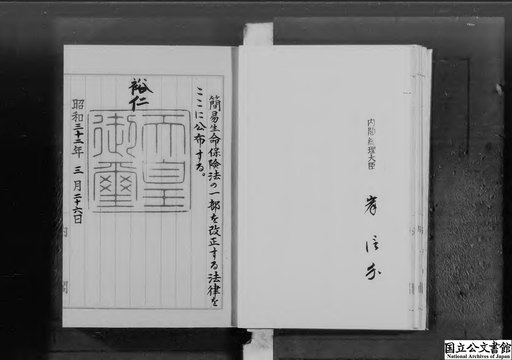 簡易生命保険法の一部を改正する法律を
ここに公布する。
裕仁
天皇
御璽
昭和三十二年三月二十六日
内閣総理大臣
岸信介
国立公文書館
National Archives of Japan